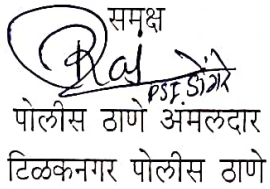 समक्ष
PSI डोंगरे
पोलीस ठाणे अंमलदार
टिळकनगर पोलीस ठाणे